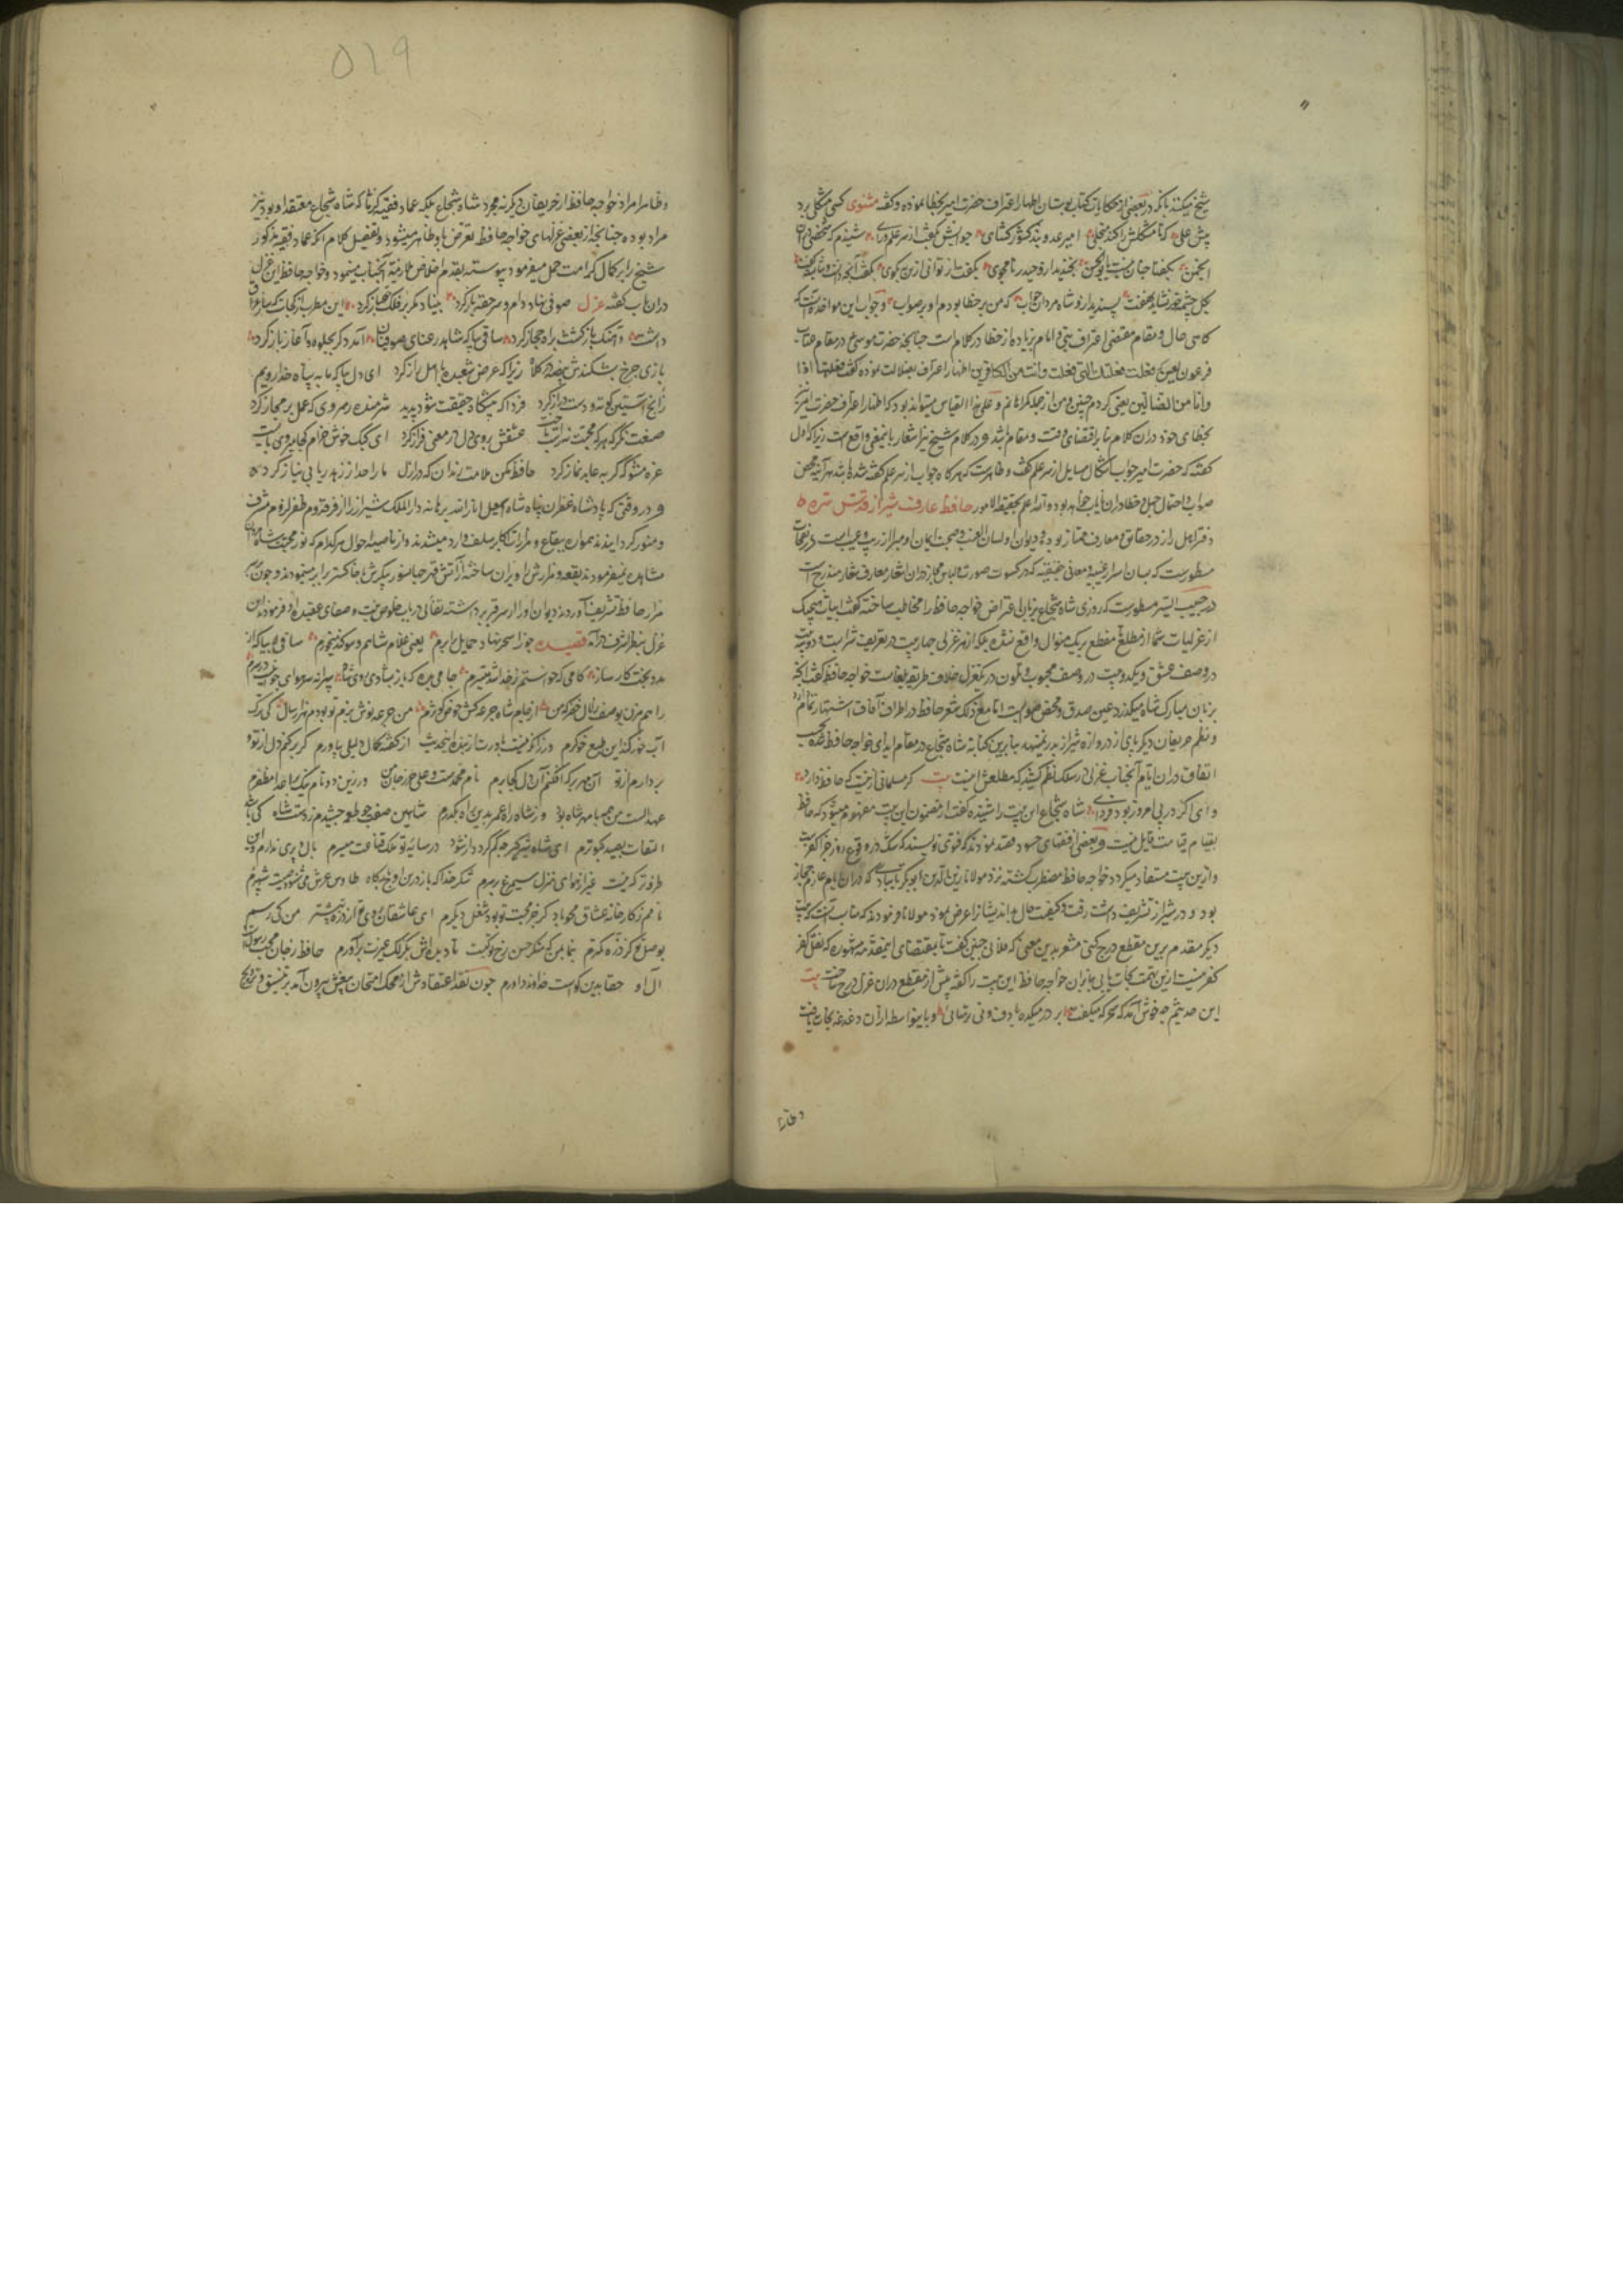 شیخ میکند بآنکه در بعضی از حکایات کتاب بوستان اظهار اعتراف حضرت امیر بخطا نموده و گفته مثنوی کسی مشکلی برد
پیش علی که تا مشکلش را کند منجلی امیر عدو بند کشور کشای جوابش بگفت از سر علم و رای شنیدم که شخصی دران
انجمن بگفتا چنان نیست یا بوالحسن نرنجید ازو حیدر نامجوی بگفت ار توانی ازین به بگوی بگفت آنچه دانست و شایسته گفت
بگل چشمه خور نشاید نهفت پسندید ازو شاه مردان جواب که من بر خطا بودم او بر صواب و جواب این مواخذه آنست که
گاهی حال و مقام مقتضی اعتراف نبی و امام بزیاده از خطا در کلام است چنانچه حضرت موسی ع در مقام عتاب
فرعون لعین که فعلت فعلتک التی فعلت وانت من الکافرین اظهار اعتراف بضلالت نموده گفت فعلتها اذا
وانا من الضالین یعنی کردم چنین و من از جمله گمراهانم و علی هذا القیاس میتواند بود که اظهار اعتراف حضرت امیر نیز
بخطای خود دران کلام بنابر اقتضای وقت و مقام باشد و در کلام شیخ نیز اشعار باینمعنی واقع است زیرا که اول
گفته که حضرت امیر جواب اشکال سایل از سر علم گفت و ظاهرست که هر گاه جواب از سر علم گفته شده باشد هر آینه محض
صواب و احتمال جهل و خطا دران نایاب خواهد بود والله اعلم بحقیقة الامور حافظ عارف شیراز قدس سره
دفتر اهل راز در حقایق و معارف ممتاز بوده دیوان او لسان الغیب و صحت ایمان او مبرا از ریب و عیب است در نفحات
مسطورست که بسا اسرار غیبیه و معانی حقیقیه که در کسوت صورت و لباس مجاز دران اشعار معارف شعار مندرج است
در حبیب السیر مسطورست که روزی شاه شجاع بزبان اعتراض خواجه حافظ را مخاطب ساخته گفت ابیات هیچیک
از غزلیات شما از مطلع تا مقطع بر یک منوال واقع نشده بلکه از هر غزلی چهار بیت در تعریف شراب است و دو بیت
در وصف عشق و یکدو بیت در وصف محبوب و تلون در یکغزل خلاف طریق بلغاست خواجه حافظ گفت آنچه
بر زبان مبارک شاه میگذرد عین صدق و محض صوابست اما مع ذلک شعر حافظ در اطراف آفاق اشتهار تمام دارد
و نظم حریفان دیگر پای از دروازه شیراز بدر نمینهد بنابرین کنایه شاه شجاع در مقام ایذای خواجه حافظ شده بحسب
اتفاق دران ایام آنجناب غزلی در سلک نظم کشید که مطلعش اینست بیت گر مسلمانی ازینست که حافظ دارد
وای اگر از پی امروز بود فردای شاه شجاع این بیت را شنیده گفت از مضمون این بیت مفهوم میشود که حافظ
بقیام قیامت قایل نیست و بعضی از فقهای حسود قصد نمودند که فتوی نویسند که شک در وقوع روز جزا کفرست
وازین بیت مستفاد میگردد خواجه حافظ مضطرب گشته نزد مولانا زین الدین ابوبکر تایبادی که دران ایام عازم حجاز
بود و در شیراز تشریف داشت رفت و کیفیت حال بد اندیشان را عرض نمود مولانا فرمود که مناسب آنست که بیت
دیگر مقدم برین مقطع درج کنی مشعر بدین معنی که فلانی چنین گفت تا بمقتضای این مقدمه مشهوره که نقل کفر
کفر نیست ازین تهمت نجات یابی بنابران خواجه حافظ این بیت را گفته پیش از مقطع دران غزل درج ساخت بیت
این حدیثم چه خوش آمد که سحرگه میگفت بر در میکده با دف و نی ترسائی و باینواسطه ازان دغدغه نجات یافت
وظاهرا
وظاهرا مراد خواجه حافظ از حریفان دیگر نه مجرد شاه شجاع بلکه عماد فقیه کرمانی که شاه شجاع معتقد او بود نیز
مراد بوده چنانچه از بعضی غزلهای خواجه حافظ تعرض باو ظاهر میشود و تفصیل کلام آنکه عماد فقیه مذکور
شیخ را بر کمال کرامت حمل میفرمود پیوسته بقدم اخلاص ملازمت آنجناب مینمود و خواجه حافظ این غزل
دران باب گفته غزل صوفی نهاد دام و سر حقه باز کرد بنیاد مکر بر فلک حقه باز کرد این مطرب از کجاست که ساز عراق
داشت و آهنگ بازگشت براه حجاز کرد ساقی بیا که شاهد رعنای صوفیان آمد دگر بجلوه و آغاز ناز کرد
بازی چرخ بشکندش بیضه در کلاه زیرا که عرض شعبده با اهل راز کرد ای دل بیا که ما به پناه خدا رویم
زانچ آستین کوته و دست دراز کرد فردا که پیشگاه حقیقت شود پدید شرمنده رهروی که عمل بر مجاز کرد
صنعت مکن که هر که محبت نه راست باخت عشقش بروی دل در معنی فراز کرد ای کبک خوش خرام کجا میروی بایست
غره مشو که گربه عابد نماز کرد حافظ مکن ملامت رندان که در ازل ما را خدا ز زهد ریا بی نیاز کرد
و در وقتی که پادشاه غفران پناه شاه اسمعیل انار الله برهانه دار الملک شیراز را از فر قدوم ظفر لزوم مشرف
و منور گردانیدند همواره بقاع و مزارات اکابر سلف وارد میشدند و از ناصیه احوال هر کدام که نور محبت شاه مردان
مشاهده نمیفرمودند بقعه و مزارش را ویران ساخته از آتش قهر جهانسوز پیکرش با خاکستر برابر مینمودند و چون بر سر
مزار حافظ تشریف آوردند دیوان او را از سر قبر برداشته تفألی در باب خلوص نیت و صفای عقیده او فرمودند این
غزل بنظر اشرف درآمد قصیده جوزا سحر نهاد حمایل برابرم یعنی غلام شاهم و سوگند میخورم ساقی بیا که از
مدد بخت کارساز کامی که خواستم ز خدا شد میسرم جامی بده که باز بشادی روی شاه پیرانه سر هوای جوانیست در سرم
راهم مزن بوصف زلال خضر که من از جام شاه جرعه کش حوض کوثرم من جرعه نوش بزم تو بودم هزار سال کی ترک
آبخور کند این طبع خوگرم ور زانکه نیستت باور از بنده این حدیث از گفته کمال دلیلی بیاورم گر بر کنم دل از تو و
بردارم از تو آن مهر بر که افکنم آن دل کجا برم نام محمدست و علی حرز جان من ورزین دو نام نیک بر اعدا مظفرم
عهد الست من همه با مهر شاه بود وز شاهراه عمر بدین راه بگذرم شاهین صفت چو طعمه چشیدم ز دست شاه کی باشد
التفات بصید کبوترم ای شاه شیرگیر چه کم گردد ار شود در سایه تو ملک قناعت میسرم بال و پری ندارم و این
طرفه تر که نیست غیر از هوای منزل سیمرغ در سرم شکر خدا که باز درین اوج بارگاه طاوس عرش می شنود صیت شهپرم
نامم ز کارخانه عشاق محو باد گر جز محبت تو بود شغل دیگرم ای عاشقان روی تو از ذره بیشتر من کی رسم
بوصل تو کز ذره کمترم بنما بمن که منکر حسن رخ تو کیست تا دیده اش بگزلک غیرت برآورم حافظ ز جان محب رسولست و
آل او حقا بدین گواست خداوند داورم چون نقد اعتقادش از محک امتحان بیغش بیرون آمد